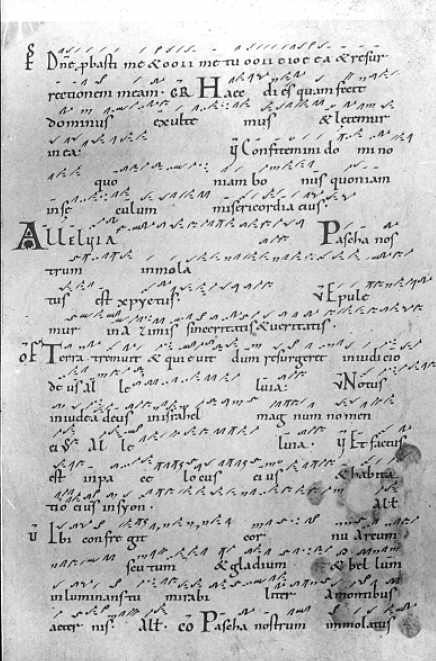 Dne pbasti me & co gno uisti me tu cognouisti & resur
rectionem meam. GR Haec dies quam fecit
dominus exulte mus & letemur
in ea. Ỿ Confitemini do mi no
quo niam bo nus quoniam
insę culum misericordia eius.
Allęluia Pascha nos
trum immola
tus est xpyctus. Ỿ Epule
mur in azimis sinceritatis & ueritatis.
OF Terra tremuit & quieuit dum resurgeret iniudicio
de us al le luia. Ỿ Notus
iniudea deus inisrahel mag num nomen
ei' Al le luia. Ỿ Et factus
est inpa ce locus eius & habita
tio eius insyon. Alł
Ỿ Ibi confre git cor nu arcum
scu tum & gladium & bel lum
inluminans tu mirabi liter amontibus
aeter nis. Alł. CO Pascha nostrum immolatus